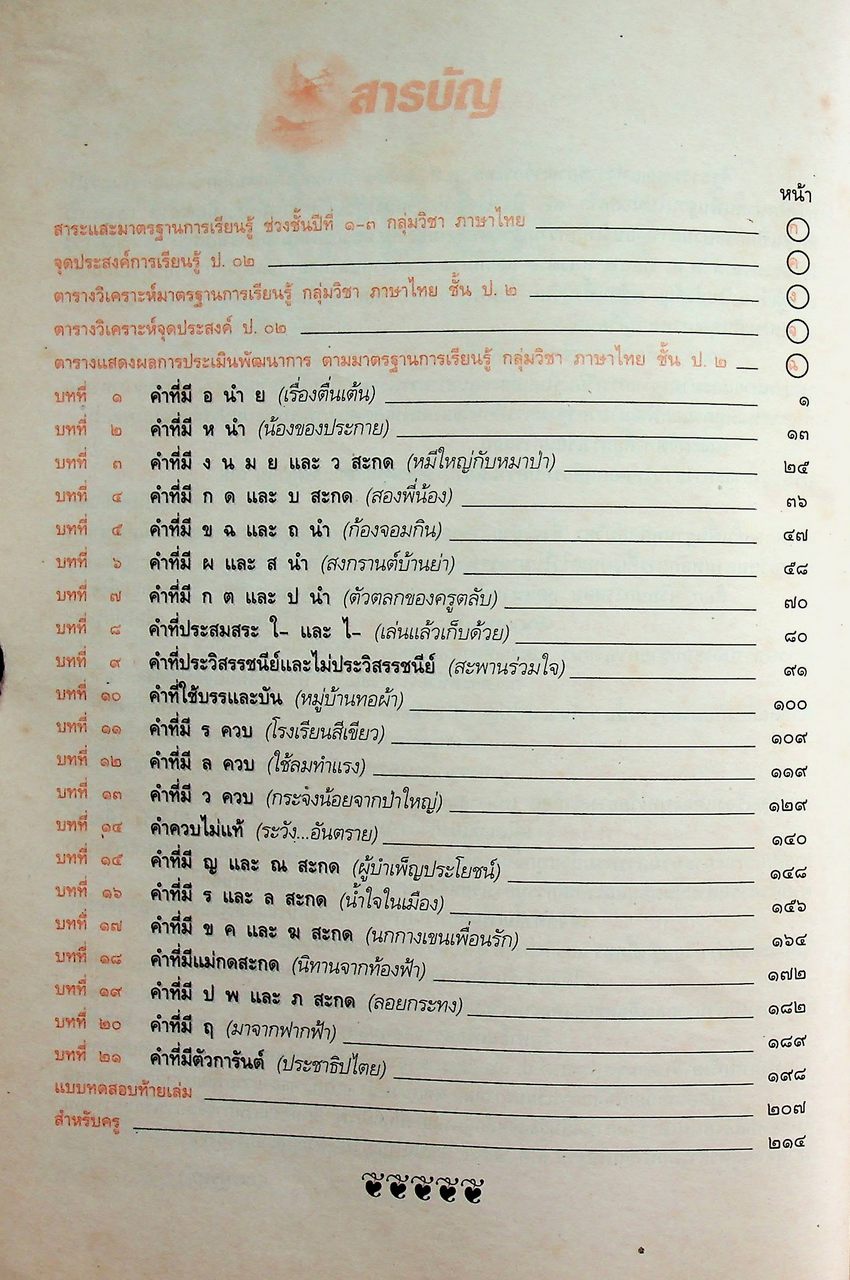 สารบัญ
หน้า
สาระและมาตรฐานการเรียนรู้ ช่วงชั้นปีที่ ๑-๓ กลุ่มวิชา ภาษาไทย ก
จุดประสงค์การเรียนรู้ ป. ๐๒ ค
ตารางวิเคราะห์มาตรฐานการเรียนรู้ กลุ่มวิชา ภาษาไทย ชั้น ป. ๒ ง
ตารางวิเคราะห์จุดประสงค์ ป. ๐๒ จ
ตารางแสดงผลการประเมินพัฒนาการ ตามมาตรฐานการเรียนรู้ กลุ่มวิชา ภาษาไทย ชั้น ป. ๒ ฉ
บทที่ ๑ คำที่มี อ นำ ย (เรื่องตื่นเต้น) ๑
บทที่ ๒ คำที่มี ห นำ (น้องของประกาย) ๑๓
บทที่ ๓ คำที่มี ง น ม ย และ ว สะกด (หมีใหญ่กับหมาป่า) ๒๕
บทที่ ๔ คำที่มี ก ด และ บ สะกด (สองพี่น้อง) ๓๖
บทที่ ๕ คำที่มี ข ฉ และ ถ นำ (ก้องจอมกิน) ๔๗
บทที่ ๖ คำที่มี ผ และ ส นำ (สงกรานต์บ้านย่า) ๕๘
บทที่ ๗ คำที่มี ก ต และ ป นำ (ตัวตลกของครูตลับ) ๗๐
บทที่ ๘ คำที่ประสมสระ ใ- และ ไ- (เล่นแล้วเก็บด้วย) ๘๐
บทที่ ๙ คำที่ประวิสรรชนีย์และไม่ประวิสรรชนีย์ (สะพานร่วมใจ) ๙๑
บทที่ ๑๐ คำที่ใช้บรรและบัน (หมู่บ้านทอผ้า) ๑๐๐
บทที่ ๑๑ คำที่มี ร ควบ (โรงเรียนสีเขียว) ๑๐๙
บทที่ ๑๒ คำที่มี ล ควบ (ใช้ลมทำแรง) ๑๑๙
บทที่ ๑๓ คำที่มี ว ควบ (กระจงน้อยจากป่าใหญ่) ๑๒๙
บทที่ ๑๔ คำควบไม่แท้ (ระวัง...อันตราย) ๑๔๐
บทที่ ๑๕ คำที่มี ญ และ ณ สะกด (ผู้บำเพ็ญประโยชน์) ๑๔๘
บทที่ ๑๖ คำที่มี ร และ ล สะกด (น้ำใจในเมือง) ๑๕๖
บทที่ ๑๗ คำที่มี ข ค และ ฆ สะกด (นกกางเขนเพื่อนรัก) ๑๖๔
บทที่ ๑๘ คำที่มีแม่กดสะกด (นิทานจากท้องฟ้า) ๑๗๒
บทที่ ๑๙ คำที่มี ป พ และ ภ สะกด (ลอยกระทง) ๑๘๒
บทที่ ๒๐ คำที่มี ฤ (มาจากฟากฟ้า) ๑๘๙
บทที่ ๒๑ คำที่มีตัวการันต์ (ประชาธิปไตย) ๑๙๘
แบบทดสอบท้ายเล่ม ๒๐๗
สำหรับครู ๒๑๔